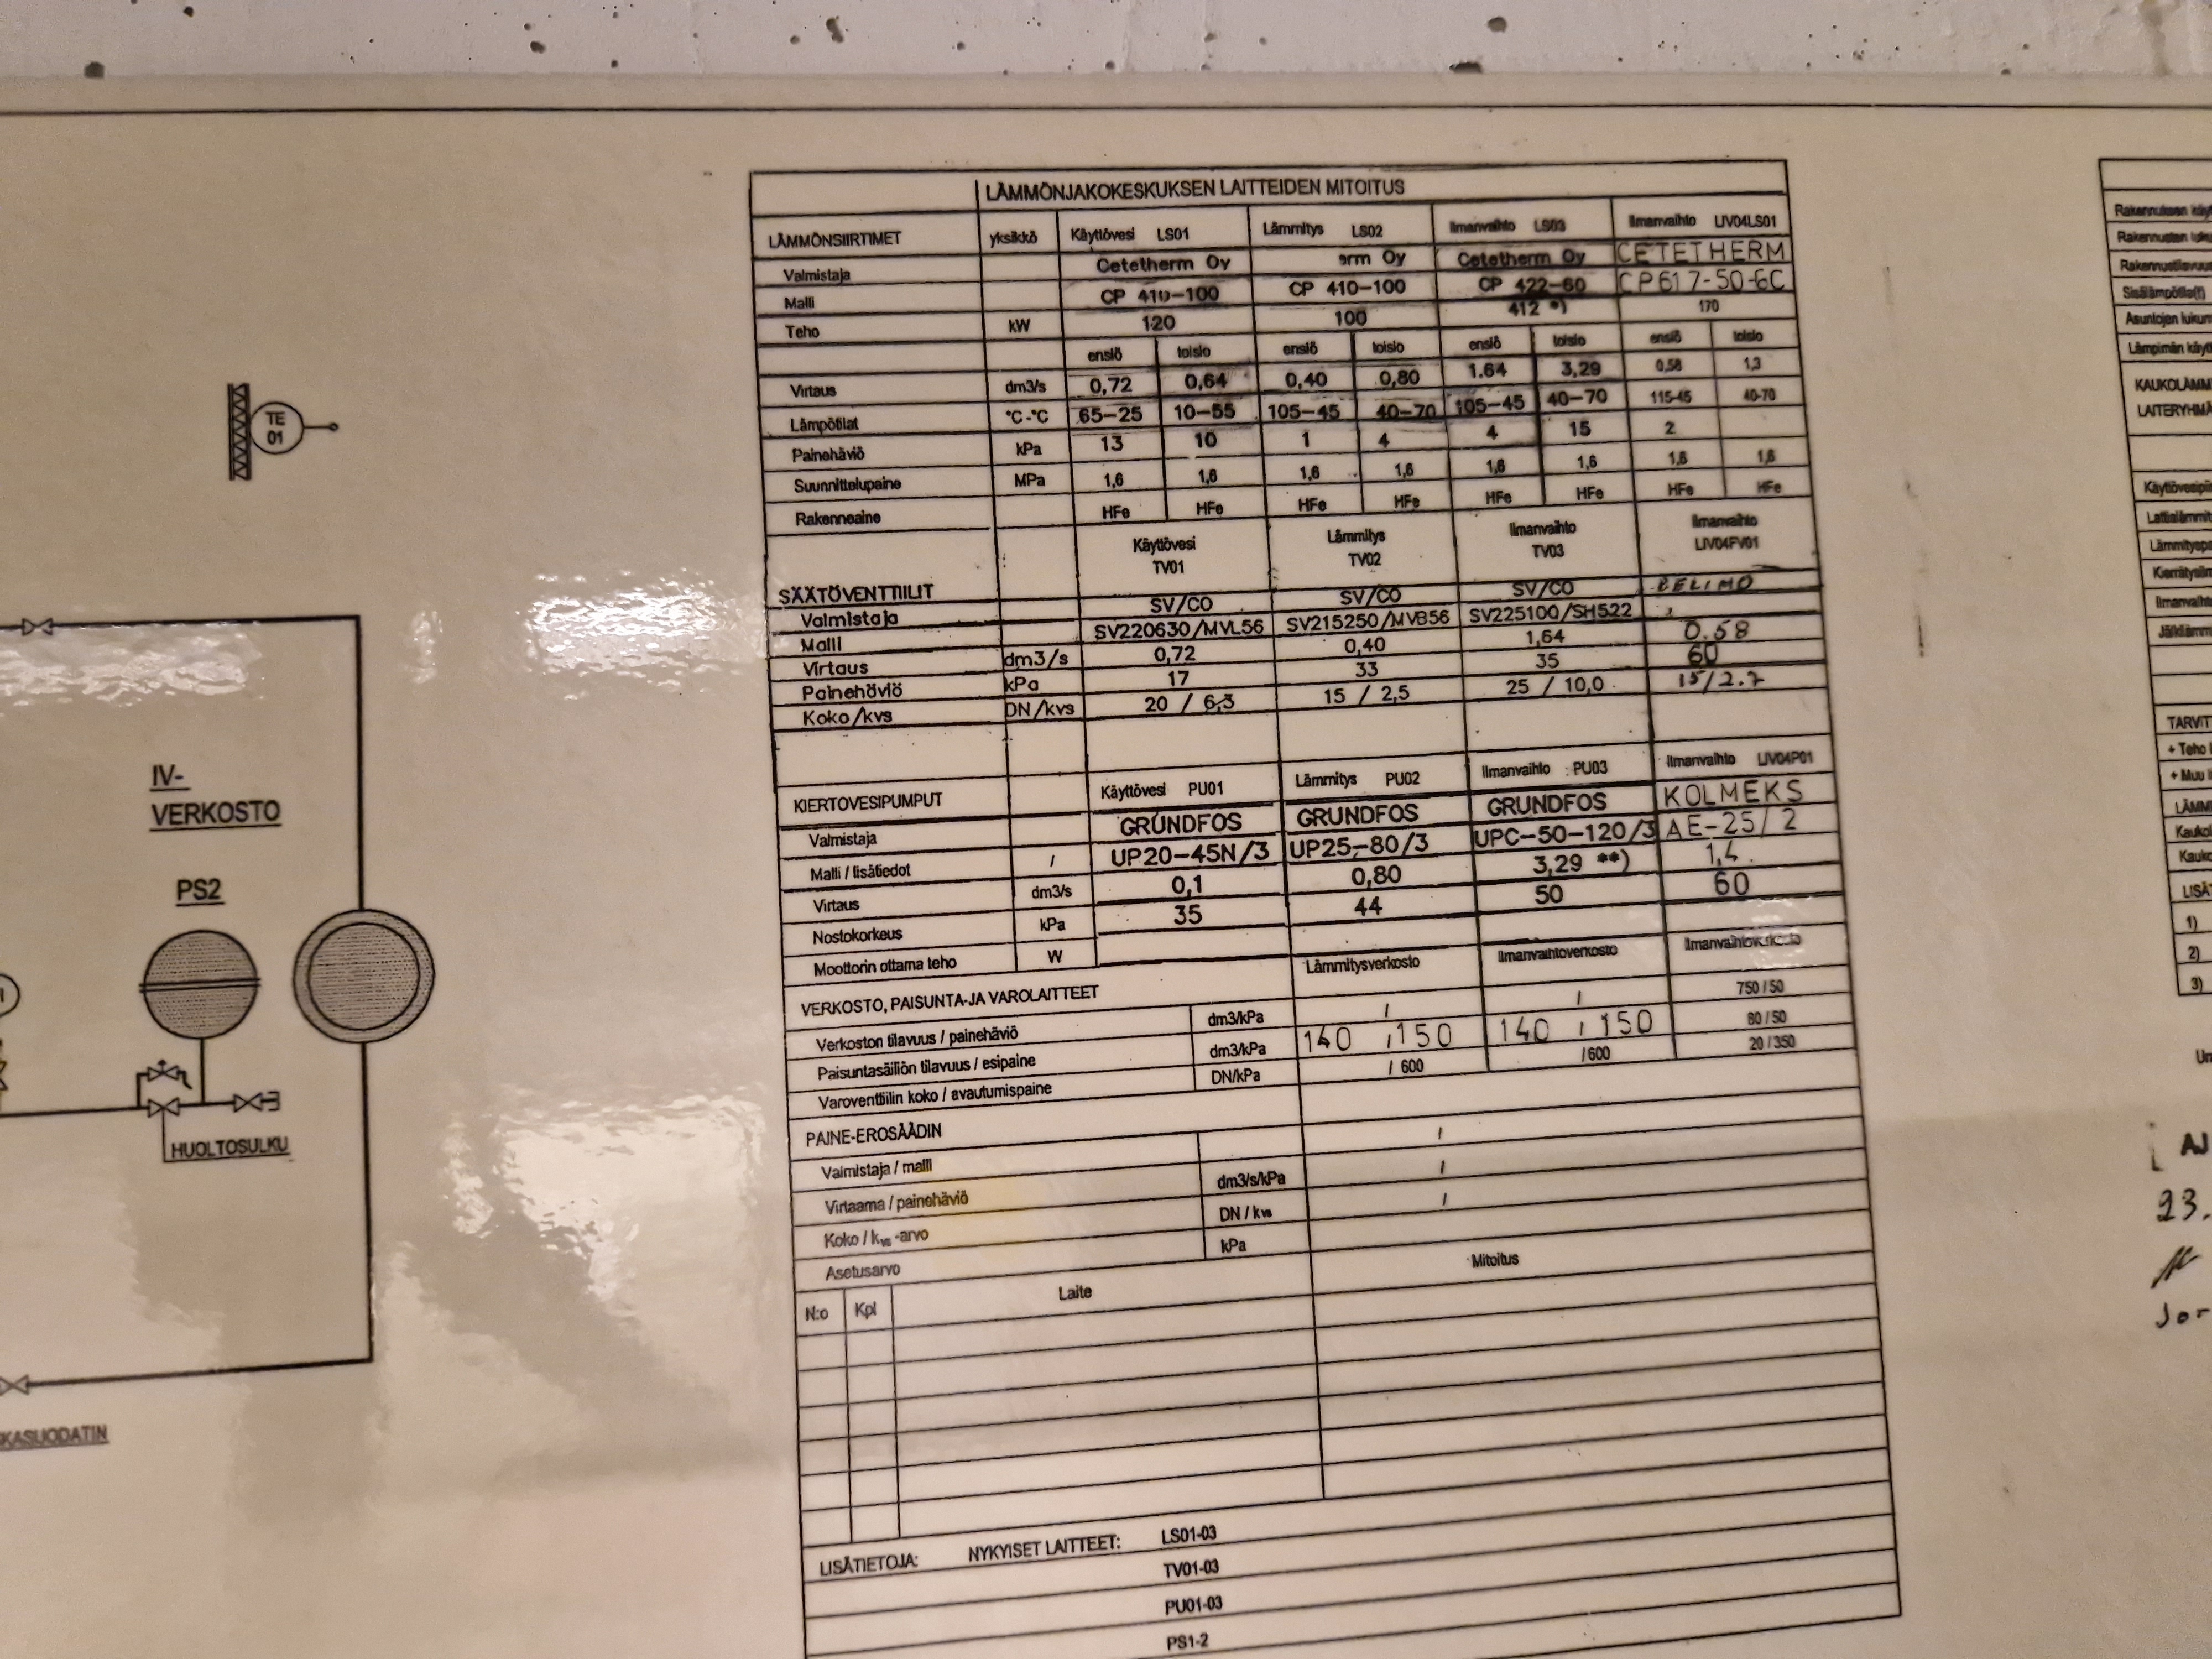 LÄMMÖNJAKOKESKUKSEN LAITTEIDEN MITOITUS
LÄMMÖNSIIRTIMET yksikkö Käyttövesi LS01 Lämmitys LS02 Ilmanvaihto LS03 Ilmanvaihto LIV04LS01
Valmistaja Cetetherm Oy erm Oy Cetetherm Oy CETETHERM
Malli CP 410-100 CP 410-100 CP 422-60 CP617-50-6C
Teho kW 120 100 412 *) 170
ensiö toisio ensiö toisio ensiö toisio ensiö toisio
Virtaus dm3/s 0,72 0,64 0,40 0,80 1.64 3,29 0,58 1,3
Lämpötilat °C-°C 65-25 10-55 105-45 40-70 105-45 40-70 115-45 40-70
Painehäviö kPa 13 10 1 4 4 15 2
Suunnittelupaine MPa 1,6 1,6 1,6 1,6 1,6 1,6 1,6 1,6
Rakenneaine HFe HFe HFe HFe HFe HFe HFe HFe
Käyttövesi Lämmitys Ilmanvaihto Ilmanvaihto
TV01 TV02 TV03 LIV04FV01
SÄÄTÖVENTTIILIT
Valmistaja SV/CO SV/CO SV/CO BELIMO
Malli SV220630/MVL56 SV215250/MVB56 SV225100/SH522
Virtaus dm3/s 0,72 0,40 1,64 0.58
Painehäviö kPa 17 33 35 60
Koko/kvs DN/kvs 20 / 6,3 15 / 2,5 25 / 10,0 15/2.7
KIERTOVESIPUMPUT Käyttövesi PU01 Lämmitys PU02 Ilmanvaihto PU03 Ilmanvaihto LIV04P01
Valmistaja GRUNDFOS GRUNDFOS GRUNDFOS KOLMEKS
Malli / lisätiedot / UP20-45N/3 UP25-80/3 UPC-50-120/3 AE-25/2
Virtaus dm3/s 0,1 0,80 3,29 **) 1,4
Nostokorkeus kPa 35 44 50 60
Moottorin ottama teho W
VERKOSTO, PAISUNTA-JA VAROLAITTEET Lämmitysverkosto Ilmanvaihtoverkosto Ilmanvaihtoverkosto
Verkoston tilavuus / painehäviö dm3/kPa / / 750 / 50
Paisuntasäiliön tilavuus / esipaine dm3/kPa 140 / 150 140 / 150 80 / 50
Varoventtiilin koko / avautumispaine DN/kPa / 600 / 600 20 / 350
PAINE-EROSÄÄDIN
Valmistaja / malli /
Virtaama / painehäviö dm3/s/kPa /
Koko / kvs -arvo DN / kvs /
Asetusarvo kPa
N:o Kpl Laite Mitoitus
LISÄTIETOJA: NYKYISET LAITTEET: LS01-03
TV01-03
PU01-03
PS1-2
TE
01
IV-
VERKOSTO
PS2
HUOLTOSULKU
KASUODATIN
Rakennuksen käy
Rakennusten luku
Rakennustilavuus
Sisälämpötila(t)
Asuntojen lukum
Lämpimän käytt
KAUKOLÄMM
LAITERYHMÄ
Käyttövesipiir
Lattialämmit
Lämmityspa
Kierrätysilm
Ilmanvaiht
Jälkilämm
TARVIT
+ Teho l
+ Muu l
LÄMM
Kaukol
Kauko
LISÄT
1)
2)
3)
Un
AJ
23.
Jor